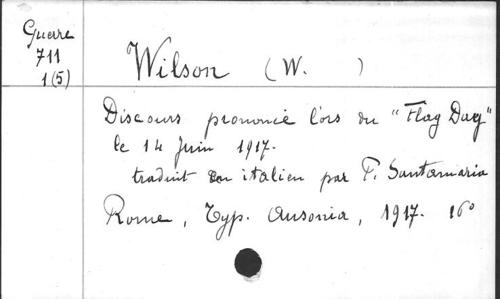 Guerre
711
1(5)
Wilson (W. )
Discours prononcé lors du "Flag Day"
le 14 Juin 1917.
traduit en italien par P. Santamaria
Rome, Typ. Ausonia, 1917. 16°